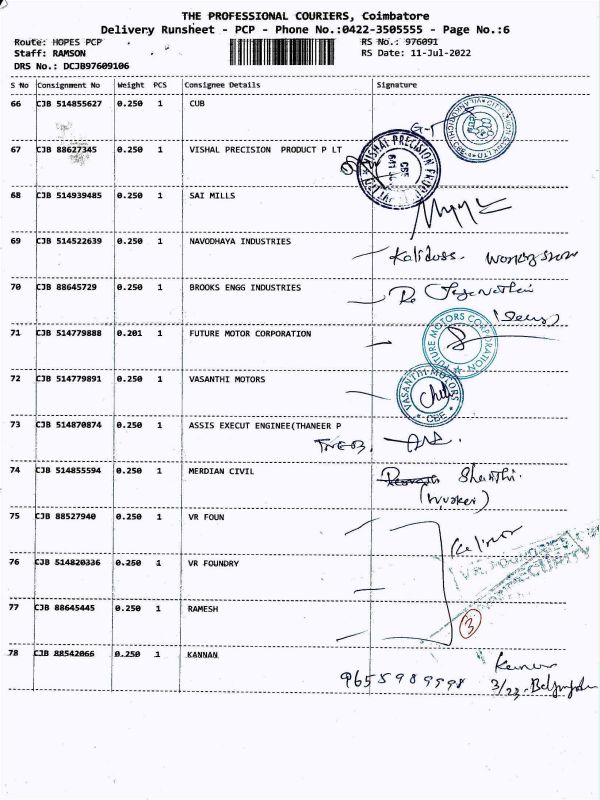 THE PROFESSIONAL COURIERS, Coimbatore
Delivery Runsheet - PCP - Phone No.:0422-3505555 - Page No.:6
Route: HOPES PCP RS No.: 976091
Staff: RAMSON RS Date: 11-Jul-2022
DRS No.: DCJB97609106
S No Consignment No Weight PCS Consignee Details Signature
66 CJB 514855627 0.250 1 CUB
67 CJB 88627345 0.250 1 VISHAL PRECISION PRODUCT P LT
VISHAL PRECISION
CBE
68 CJB 514939485 0.250 1 SAI MILLS
69 CJB 514522639 0.250 1 NAVODHAYA INDUSTRIES
Kalidoss.
70 CJB 88645729 0.250 1 BROOKS ENGG INDUSTRIES
71 CJB 514779888 0.201 1 FUTURE MOTOR CORPORATION
FUTURE MOTORS CORPORATION
72 CJB 514779891 0.250 1 VASANTHI MOTORS
VASANTHI MOTORS
CBE
73 CJB 514870874 0.250 1 ASSIS EXECUT ENGINEE(THANEER P
TNEB
74 CJB 514855594 0.250 1 MERDIAN CIVIL
Shanthi.
(Worker)
75 CJB 88527940 0.250 1 VR FOUN
76 CJB 514820336 0.250 1 VR FOUNDRY
SECURITY
77 CJB 88645445 0.250 1 RAMESH
3
78 CJB 88542066 0.250 1 KANNAN
9655989998 3/23,